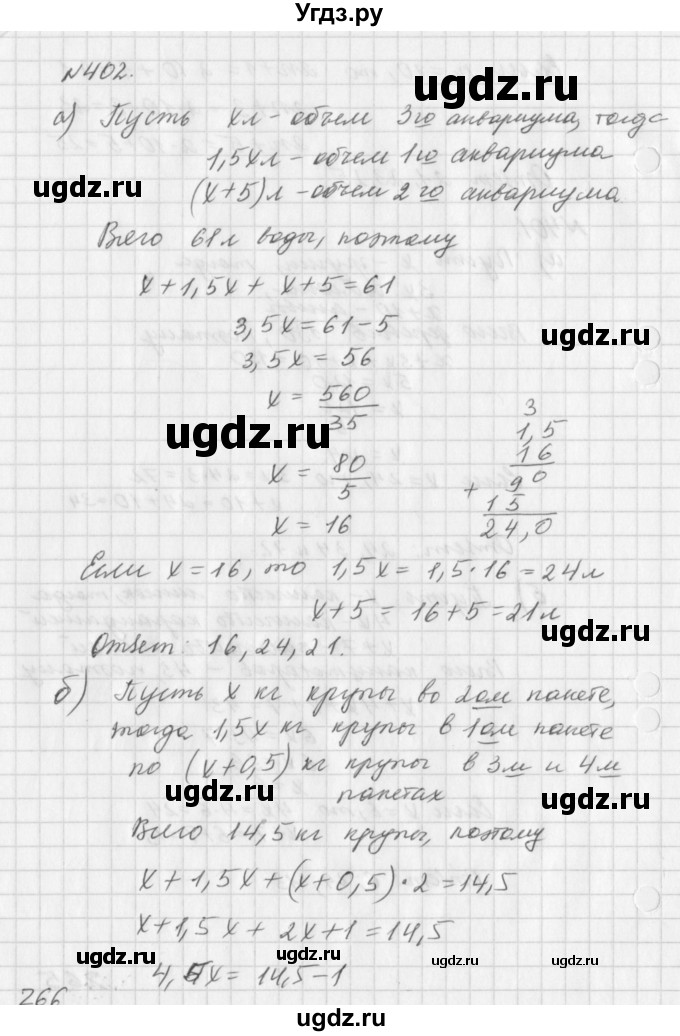 Угдз.ру
№402.
ugdz.ru
а) Пусть x л - объем 3го аквариума, тогда
1,5x л - объем 1го аквариума
ugdz.ru
(x+5) л - объем 2го аквариума
Всего 61 л воды, поэтому
x + 1,5x + x + 5 = 61
3,5x = 61 - 5
ugdz.ru
3,5x = 56
x = 560/35
ugdz.ru
x = 80/5
x = 16
3
1,5
16
+ 90
15
24,0
Если x = 16, то 1,5x = 1,5 · 16 = 24 л
x + 5 = 16 + 5 = 21 л
ugdz.ru
Ответ: 16, 24, 21.
б) Пусть x кг крупы во 2ом пакете,
тогда 1,5x кг крупы в 1ом пакете
по (x+0,5) кг крупы в 3м и 4м
пакетах
ugdz.ru
ugdz.ru
Всего 14,5 кг крупы, поэтому
x + 1,5x + (x + 0,5) · 2 = 14,5
x + 1,5x + 2x + 1 = 14,5
ugdz.ru
ugdz.ru
ugdz.ru
4,5x = 14,5 - 1
266